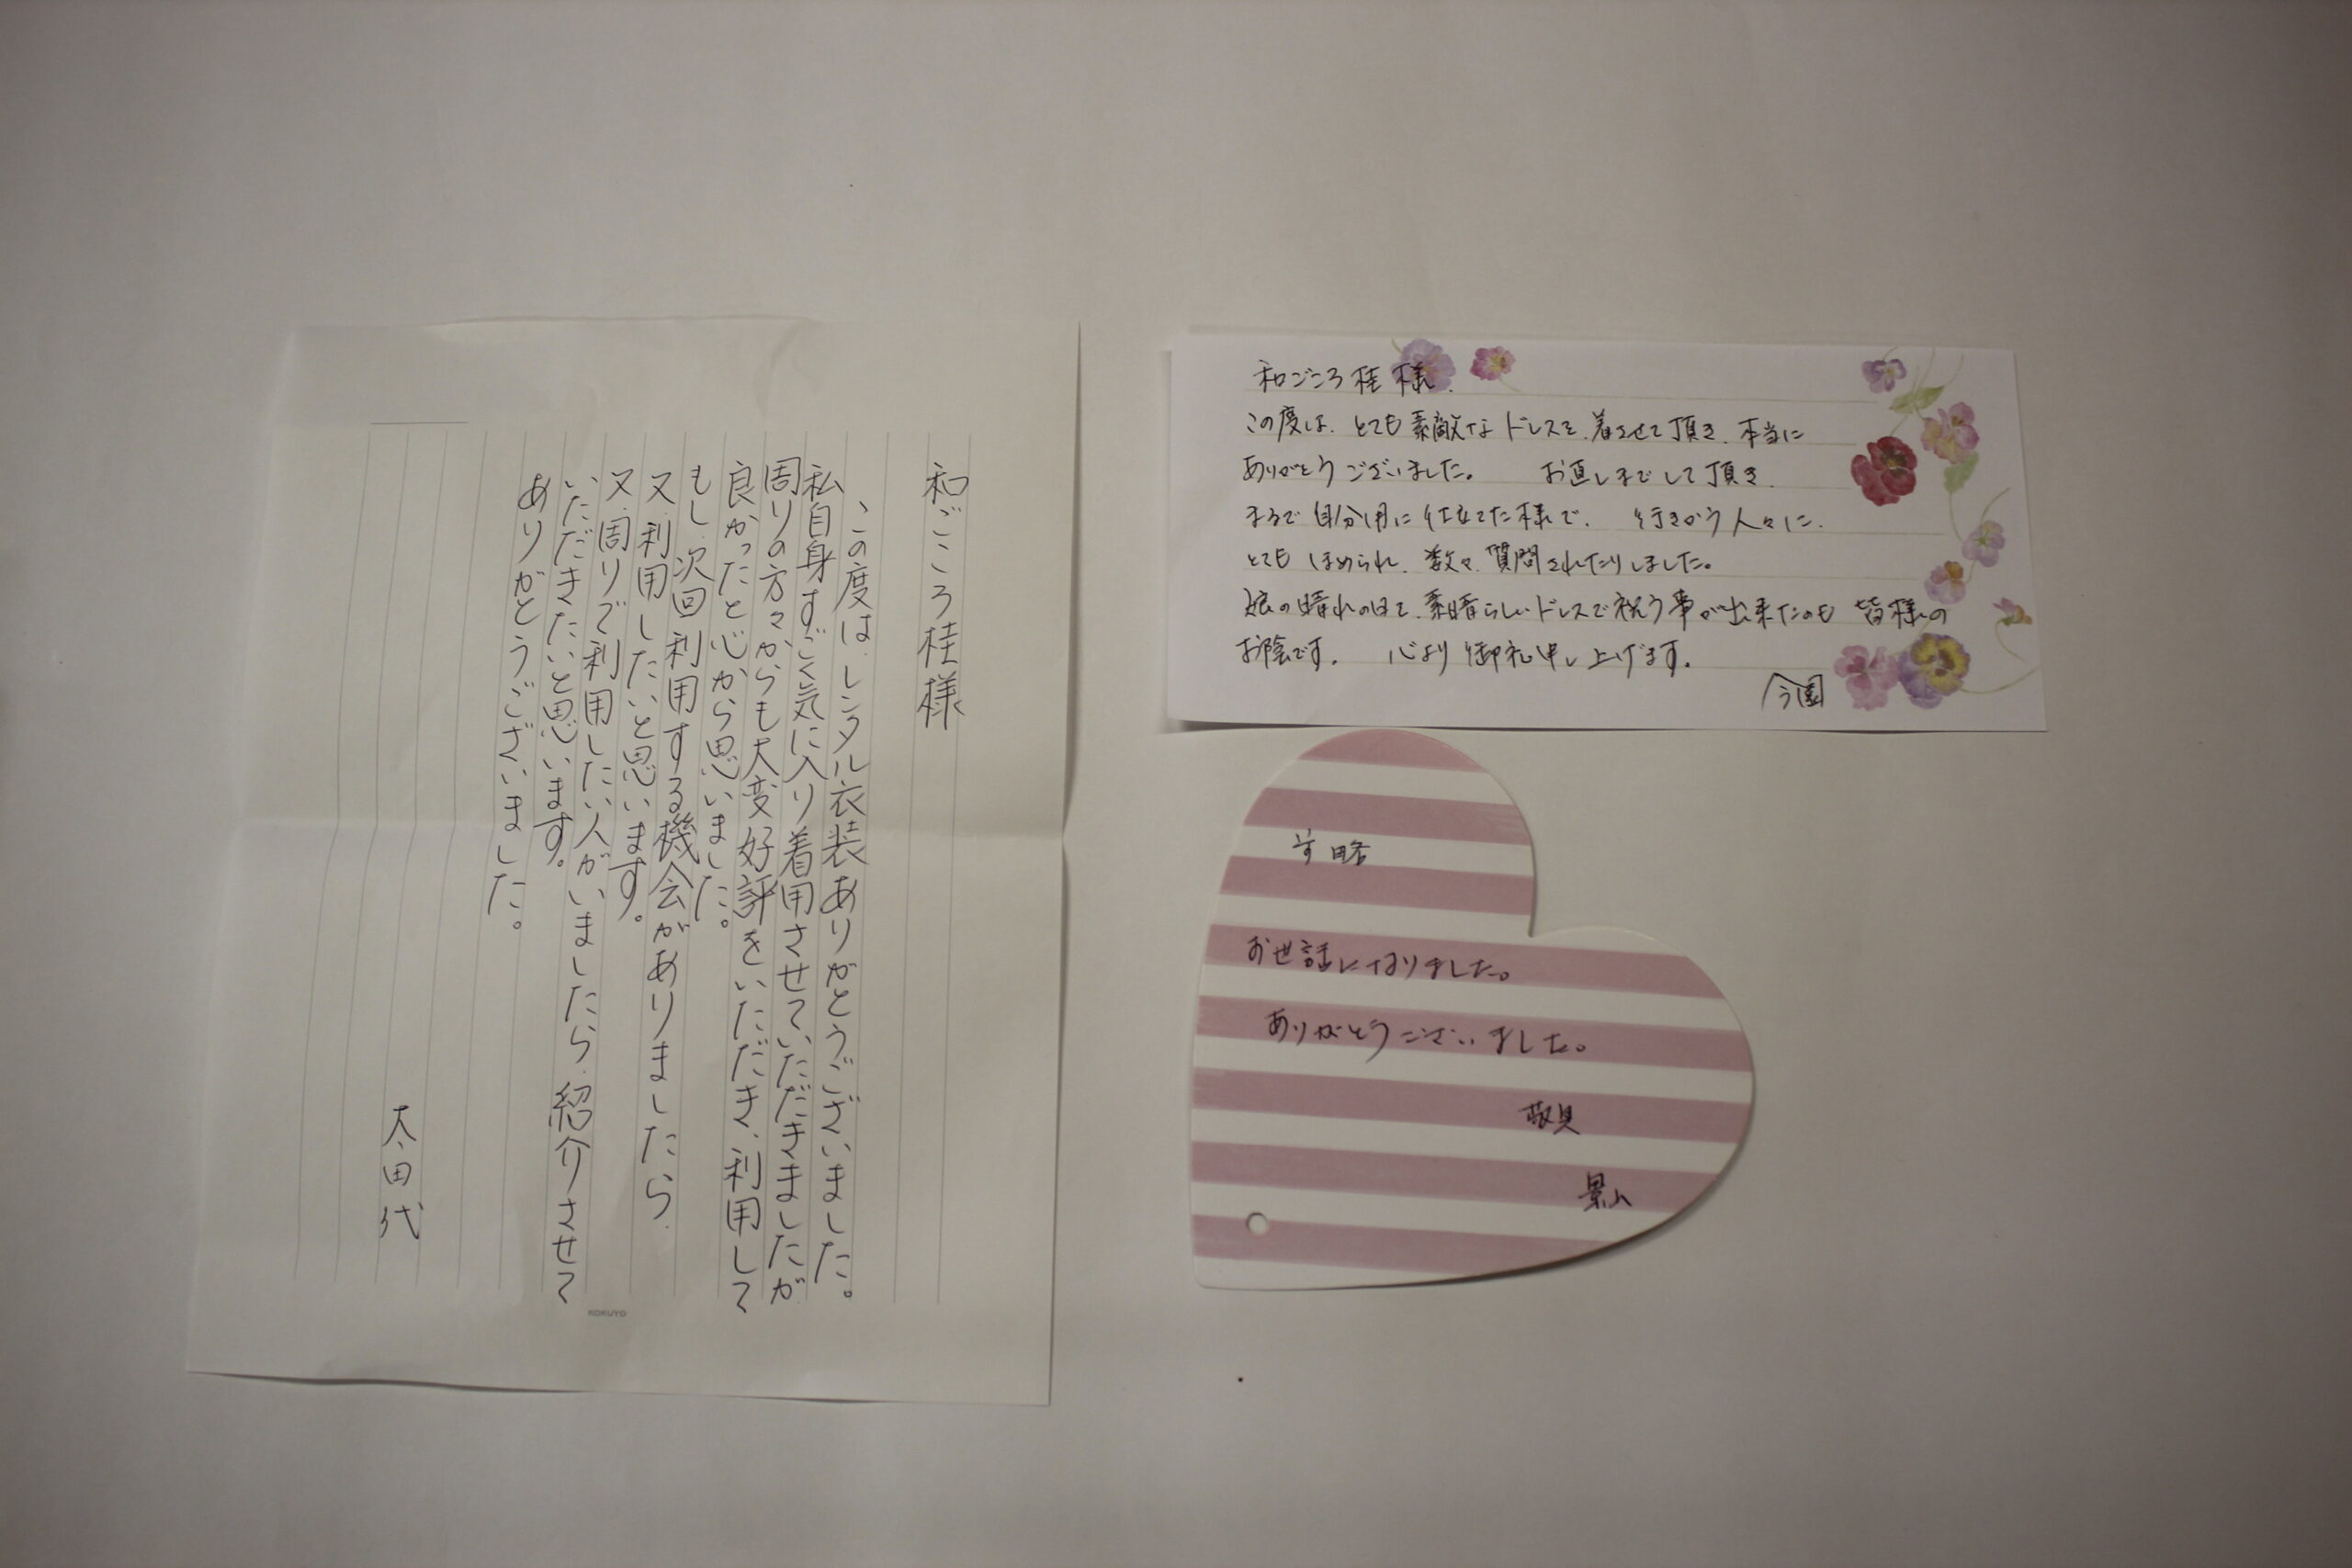 和ごころ桂様
この度は、レンタル衣装ありがとうございました。
私自身すごく気に入り着用させていただきましたが
周りの方々からも大変好評をいただき、利用して
良かったと心から思いました。
もし、次回利用する機会がありましたら、
又、利用したいと思います。
又、周りで利用したい人がいましたら、紹介させて
いただきたいと思います。
ありがとうございました。
太田代
KOKUYO
和ごころ桂様
この度は、とても素敵なドレスを、着させて頂き、本当に
ありがとうございました。 お直しまでして頂き、
まるで自分用に仕立てた様で、 行きかう人々に、
とても ほめられ、数々、質問されたりしました。
娘の晴れの日を、素晴らしいドレスで祝う事が出来たのも 皆様の
お陰です。 心より御礼申し上げます。
今園
前略
お世話になりました。
ありがとうございました。
敬具
景山